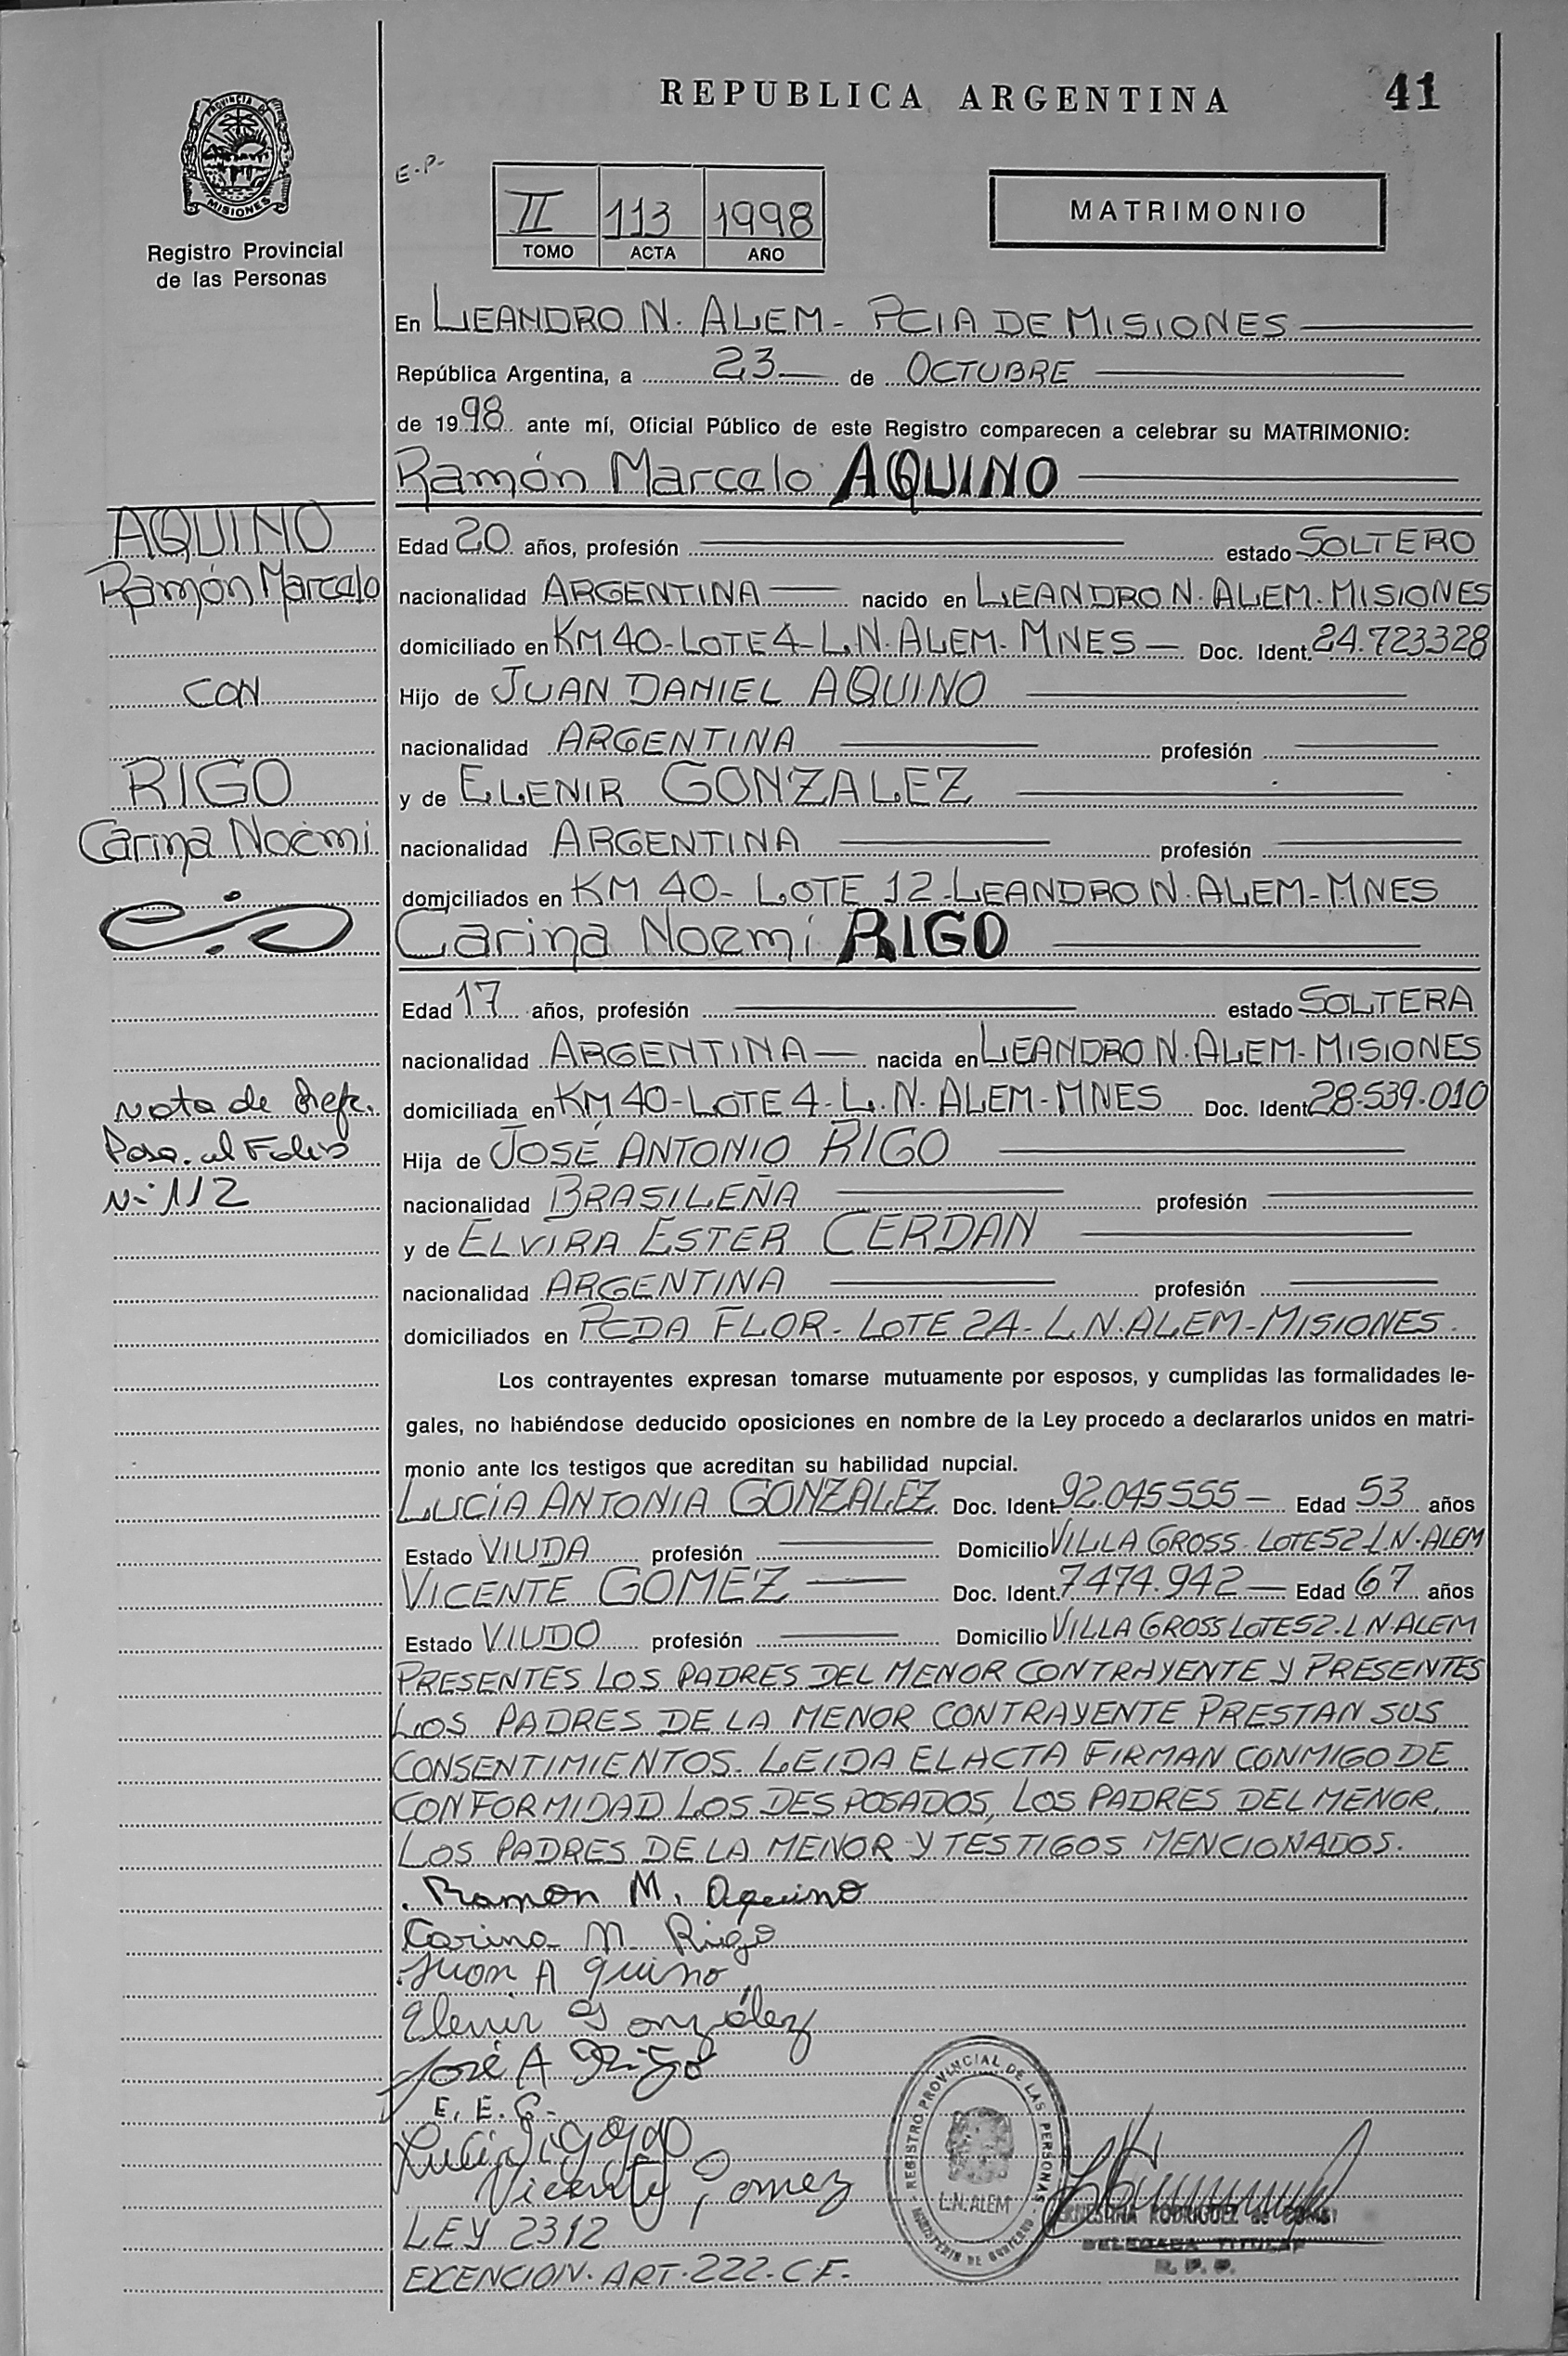 REPUBLICA ARGENTINA
41
PROVINCIA DE
MISIONES
Registro Provincial
de las Personas
E-P-
II 113 1998
TOMO ACTA AÑO
MATRIMONIO
En LEANDRO N. ALEM - PCIA DE MISIONES
República Argentina, a 23 de OCTUBRE
de 1998 ante mí, Oficial Público de este Registro comparecen a celebrar su MATRIMONIO:
Ramón Marcelo AQUINO
AQUINO
Ramón Marcelo
CON
RIGO
Carina Noemi
Edad 20 años, profesión estado SOLTERO
nacionalidad ARGENTINA nacido en LEANDRO N. ALEM-MISIONES
domiciliado en KM 40-LOTE 4-L.N. ALEM-MNES Doc. Ident. 24.723328
Hijo de JUAN DANIEL AQUINO
nacionalidad ARGENTINA profesión
y de ELENIR GONZALEZ
nacionalidad ARGENTINA profesión
domiciliados en KM 40- LOTE 12-LEANDRO N. ALEM-MNES
Carina Noemí RIGO
Edad 17 años, profesión estado SOLTERA
nacionalidad ARGENTINA nacida en LEANDRO N. ALEM-MISIONES
domiciliada en KM 40-LOTE 4-L.N. ALEM-MNES Doc. Ident 28.539.010
Hija de JOSÉ ANTONIO RIGO
nacionalidad BRASILEÑA profesión
y de ELVIRA ESTER CERDAN
nacionalidad ARGENTINA profesión
domiciliados en PCDA FLOR- LOTE 24- L.N. ALEM-MISIONES.
Nota de Refe.
Pasa. al Folio
N° 112
Los contrayentes expresan tomarse mutuamente por esposos, y cumplidas las formalidades le-
gales, no habiéndose deducido oposiciones en nombre de la Ley procedo a declararlos unidos en matri-
monio ante los testigos que acreditan su habilidad nupcial.
LUCÍA ANTONIA GONZALEZ Doc. Ident. 92.045555- Edad 53 años
Estado VIUDA profesión Domicilio VILLA GROSS-LOTE52 L.N. ALEM
VICENTE GOMEZ Doc. Ident. 7474.942 Edad 67 años
Estado VIUDO profesión Domicilio VILLA GROSS LOTE52. L N ALEM
PRESENTES LOS PADRES DEL MENOR CONTRAYENTE Y PRESENTES
LOS PADRES DE LA MENOR CONTRAYENTE PRESTAN SUS
CONSENTIMIENTOS. LEIDA EL ACTA FIRMAN CONMIGO DE
CONFORMIDAD LOS DESPOSADOS, LOS PADRES DEL MENOR,
LOS PADRES DE LA MENOR Y TESTIGOS MENCIONADOS.
Ramon M. Aquino
Carina N. Rigo
Juan Aquino
Elenir González
José A Rigo
E. E. C.
Vicente Gomez
REGISTRO PROVINCIAL DE LAS PERSONAS
L.N. ALEM
MINISTERIO DE GOBIERNO
RODRIGUEZ de
DELEGADA TITULAR
R. P. P.
LEY 2312
EXENCION. ART. 222. C F.